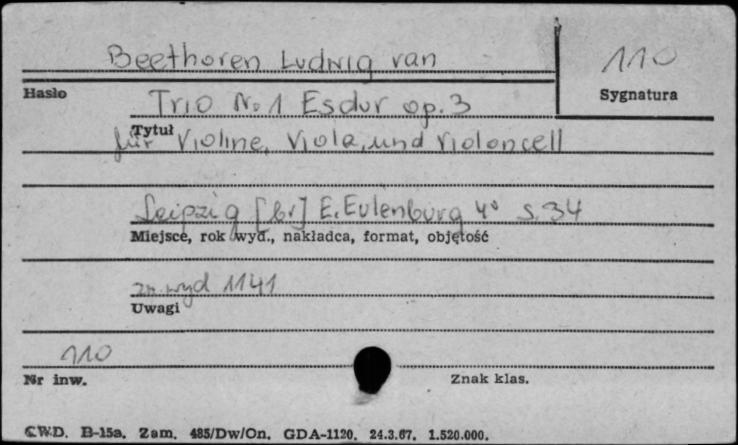 Beethoven Ludwig van
110
Hasło
Sygnatura
Trio No 1 Esdur op. 3
Tytuł
für Violine, Viola, und Violoncell
Leipzig [br] E. Eulenburg 4° s. 34
Miejsce, rok wyd., nakładca, format, objętość
zn. wyd 1141
Uwagi
110
Nr inw.
Znak klas.
CWD. B-15a. Zam. 485/Dw/On. GDA-1120. 24.3.67. 1.520.000.